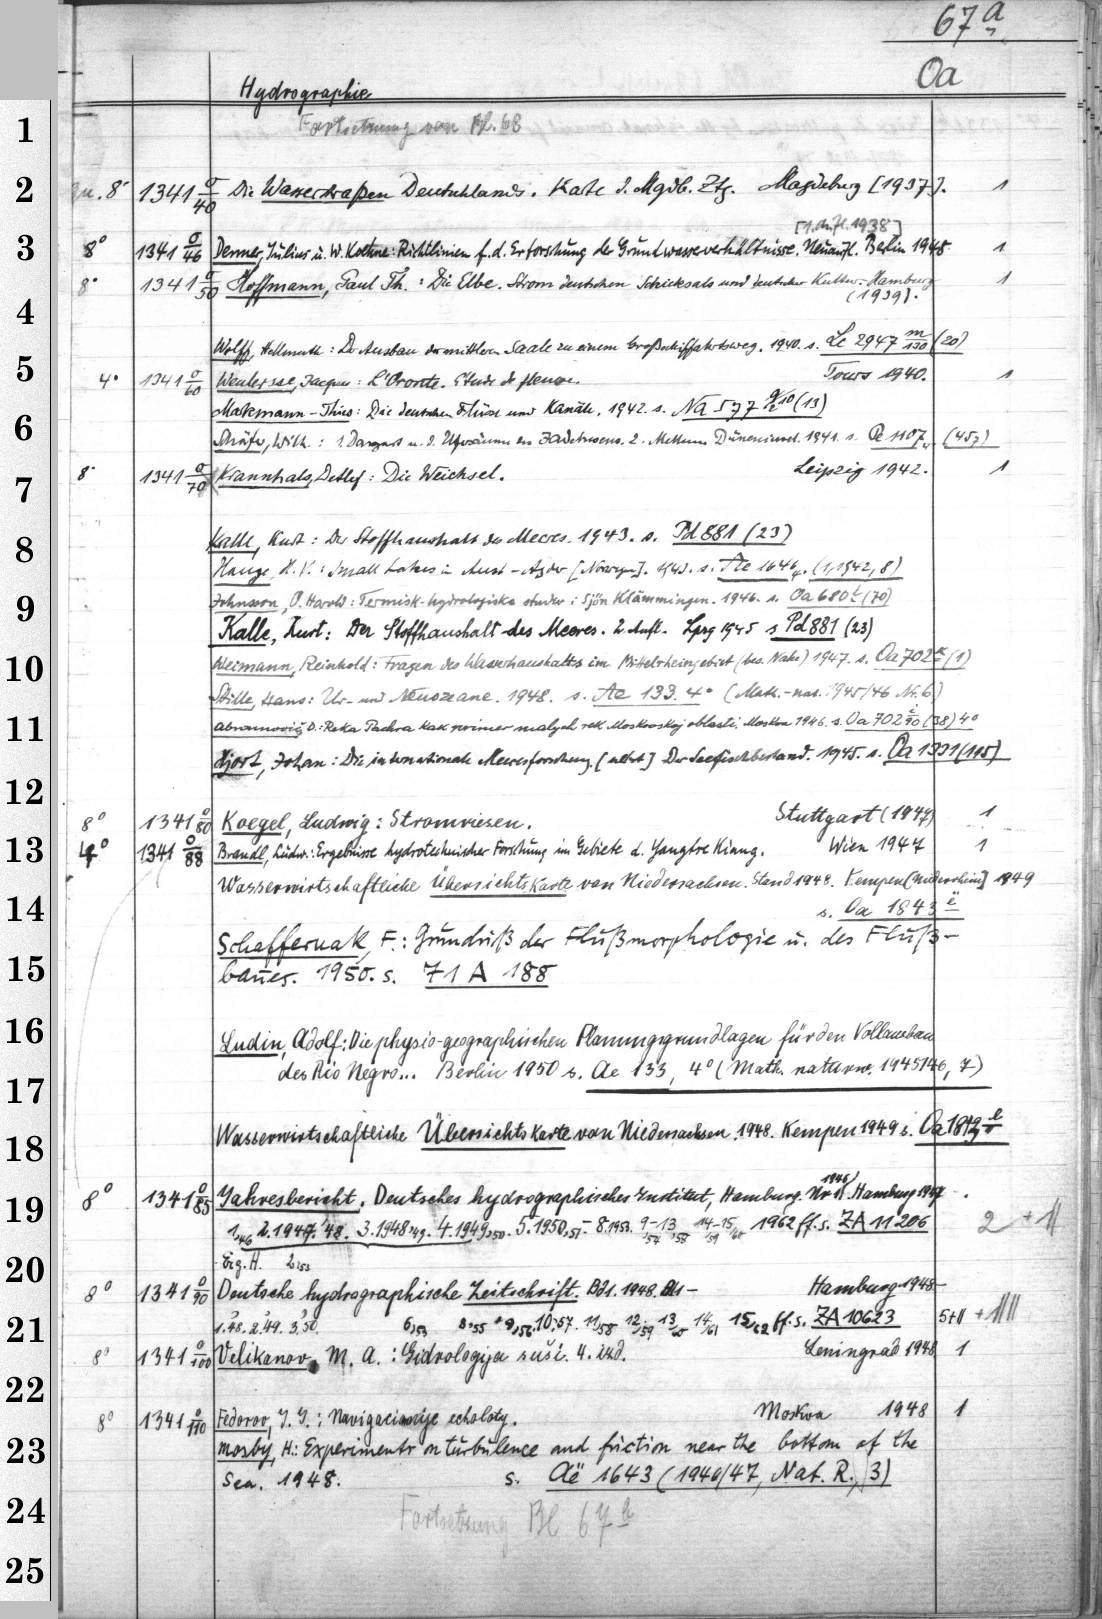 67 a
Oa
Hydrographie
Fortsetzung von Bl. 68
1
2 8° 1341 o/40 Die Wasserstraßen Deutschlands. Karte d. Mgdb. Ztg. Magdeburg [1937]. 1
[1. Aufl. 1938]
3 8° 1341 o/46 Denner, Julius u. W. Koehne: Richtlinien f. d. Erforschung der Grundwasserverhältnisse. Neuaufl. Berlin 1948 1
8° 1341 o/50 Hoffmann, Paul Th. : Die Elbe. Strom deutschen Schicksals und deutscher Kultur. Hamburg 1
4 (1939).
Wolff, Hellmuth : D. Ausbau der mittleren Saale zu einem Großschiffahrtsweg. 1940. s. Le 2947 m/130 (20)
5 4° 1341 o/60 Weulersse, Jacques : L'Oronte. Etude de fleuve. Tours 1940. 1
Matzmann-Thies: Die deutschen Flüsse und Kanäle. 1942. s. Na 577 (13)
6 Schäfer, Wilh. : 1. Dargast u. d. Uferräume des Jadebusens. 2. Mellum Düneninsel. 1941. s. 1107 (457)
7 8° 1341 o/70 Krannhals, Detlef : Die Weichsel. Leipzig 1942. 1
8 Kalle, Kurt : Der Stoffhaushalt des Meeres. 1943. s. Pd 881 (23)
Hauge, H. V. : Small Lakes in Aust-Agder [Norwegen]. 1943. s. Ae 1646, 4. (1, 1942, 8)
9 Johnsson, O. Harold : Termisk-hydrologiska studier i Sjön Klämmingen. 1946. s. Oa 680 (70)
Kalle, Kurt: Der Stoffhaushalt des Meeres. 2. Aufl. Lpzg 1945 s. Pd 881 (23)
10 Weimann, Reinhold : Fragen des Wasserhaushalts im Mittelrheingebiet (bes. Nahe) 1947. s. Oa 702 (1)
Stille, Hans: Ur- und Neuozeane. 1948. s. Ae 133. 4° (Math.-nat. 1945/46 Nr. 6)
11 Abramovič, D.: Reka Pachra kak primer malych rek Moskovskoj oblasti. Moskva 1946. s. Oa 702 /90 (38) 4°
Hjort, Johan : Die internationale Meeresforschung [nebst] Der Seefischbestand. 1945. s. Oa 1331 (115)
12
8° 1341 o/80 Koegel, Ludwig : Stromriesen. Stuttgart (1947) 1
13 4° 1341 o/88 Brandl, Ludw.: Ergebnisse hydrotechnischer Forschung im Gebiete d. Yangtse Kiang. Wien 1947 1
Wasserwirtschaftliche Übersichtskarte von Niedersachsen. Stand 1948. Kempen [Niederrhein] 1949
14 s. Oa 1843 ë
Schaffernak, F.: Grundriß der Flußmorphologie u. des Fluß-
15 baues. 1950. s. 71 A 188
16 Ludin, Adolf: Die physio-geographischen Planungsgrundlagen für den Vollausbau
17 des Rio Negro... Berlin 1950 s. Ae 133, 4° (Math. naturw. 1945/46, 7)
18 Wasserwirtschaftliche Übersichtskarte von Niedersachsen. 1948. Kempen 1949 s. Oa 1843
19 8° 1341 o/85 Jahresbericht. Deutsches hydrographisches Institut, Hamburg. Nr 1 (1946). Hamburg 1947 .
1,46 2.1947. '48. 3.1948/49. 4.1949,50. 5.1950,51- 8.1953. 9-13 14-15 1962 ff. s. ZA 11206 2 + 11
20 Erg. H. 2,53
8° 1341 o/90 Deutsche hydrographische Zeitschrift. Bd 1. 1948. Hamburg 1948-
21 1.48. 2.49. 3,50. 6,53 8,55 + 9,56. 10,57. 11/58 12/59 13/60 14/61 15/62 ff. s. ZA 10623 5+11
8° 1341 o/100 Velikanov, M. A. : Gidrologija suši. 4. izd. Leningrad 1948 1
22
8° 1341 o/110 Fedorov, I. I. : Navigacionnye echoloty. Moskva 1948 1
23 Mosby, H.: Experiments on turbulence and friction near the bottom of the
Sea. 1948. s. Aë 1643 (1946/47, Nat. R., 3)
24 Fortsetzung Bl 67 b
25